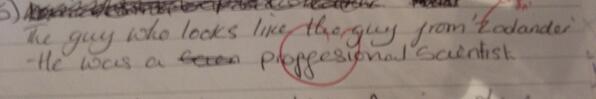 The guy who looks like the guy from 'Zodander'
-He was a proffesional Scientist